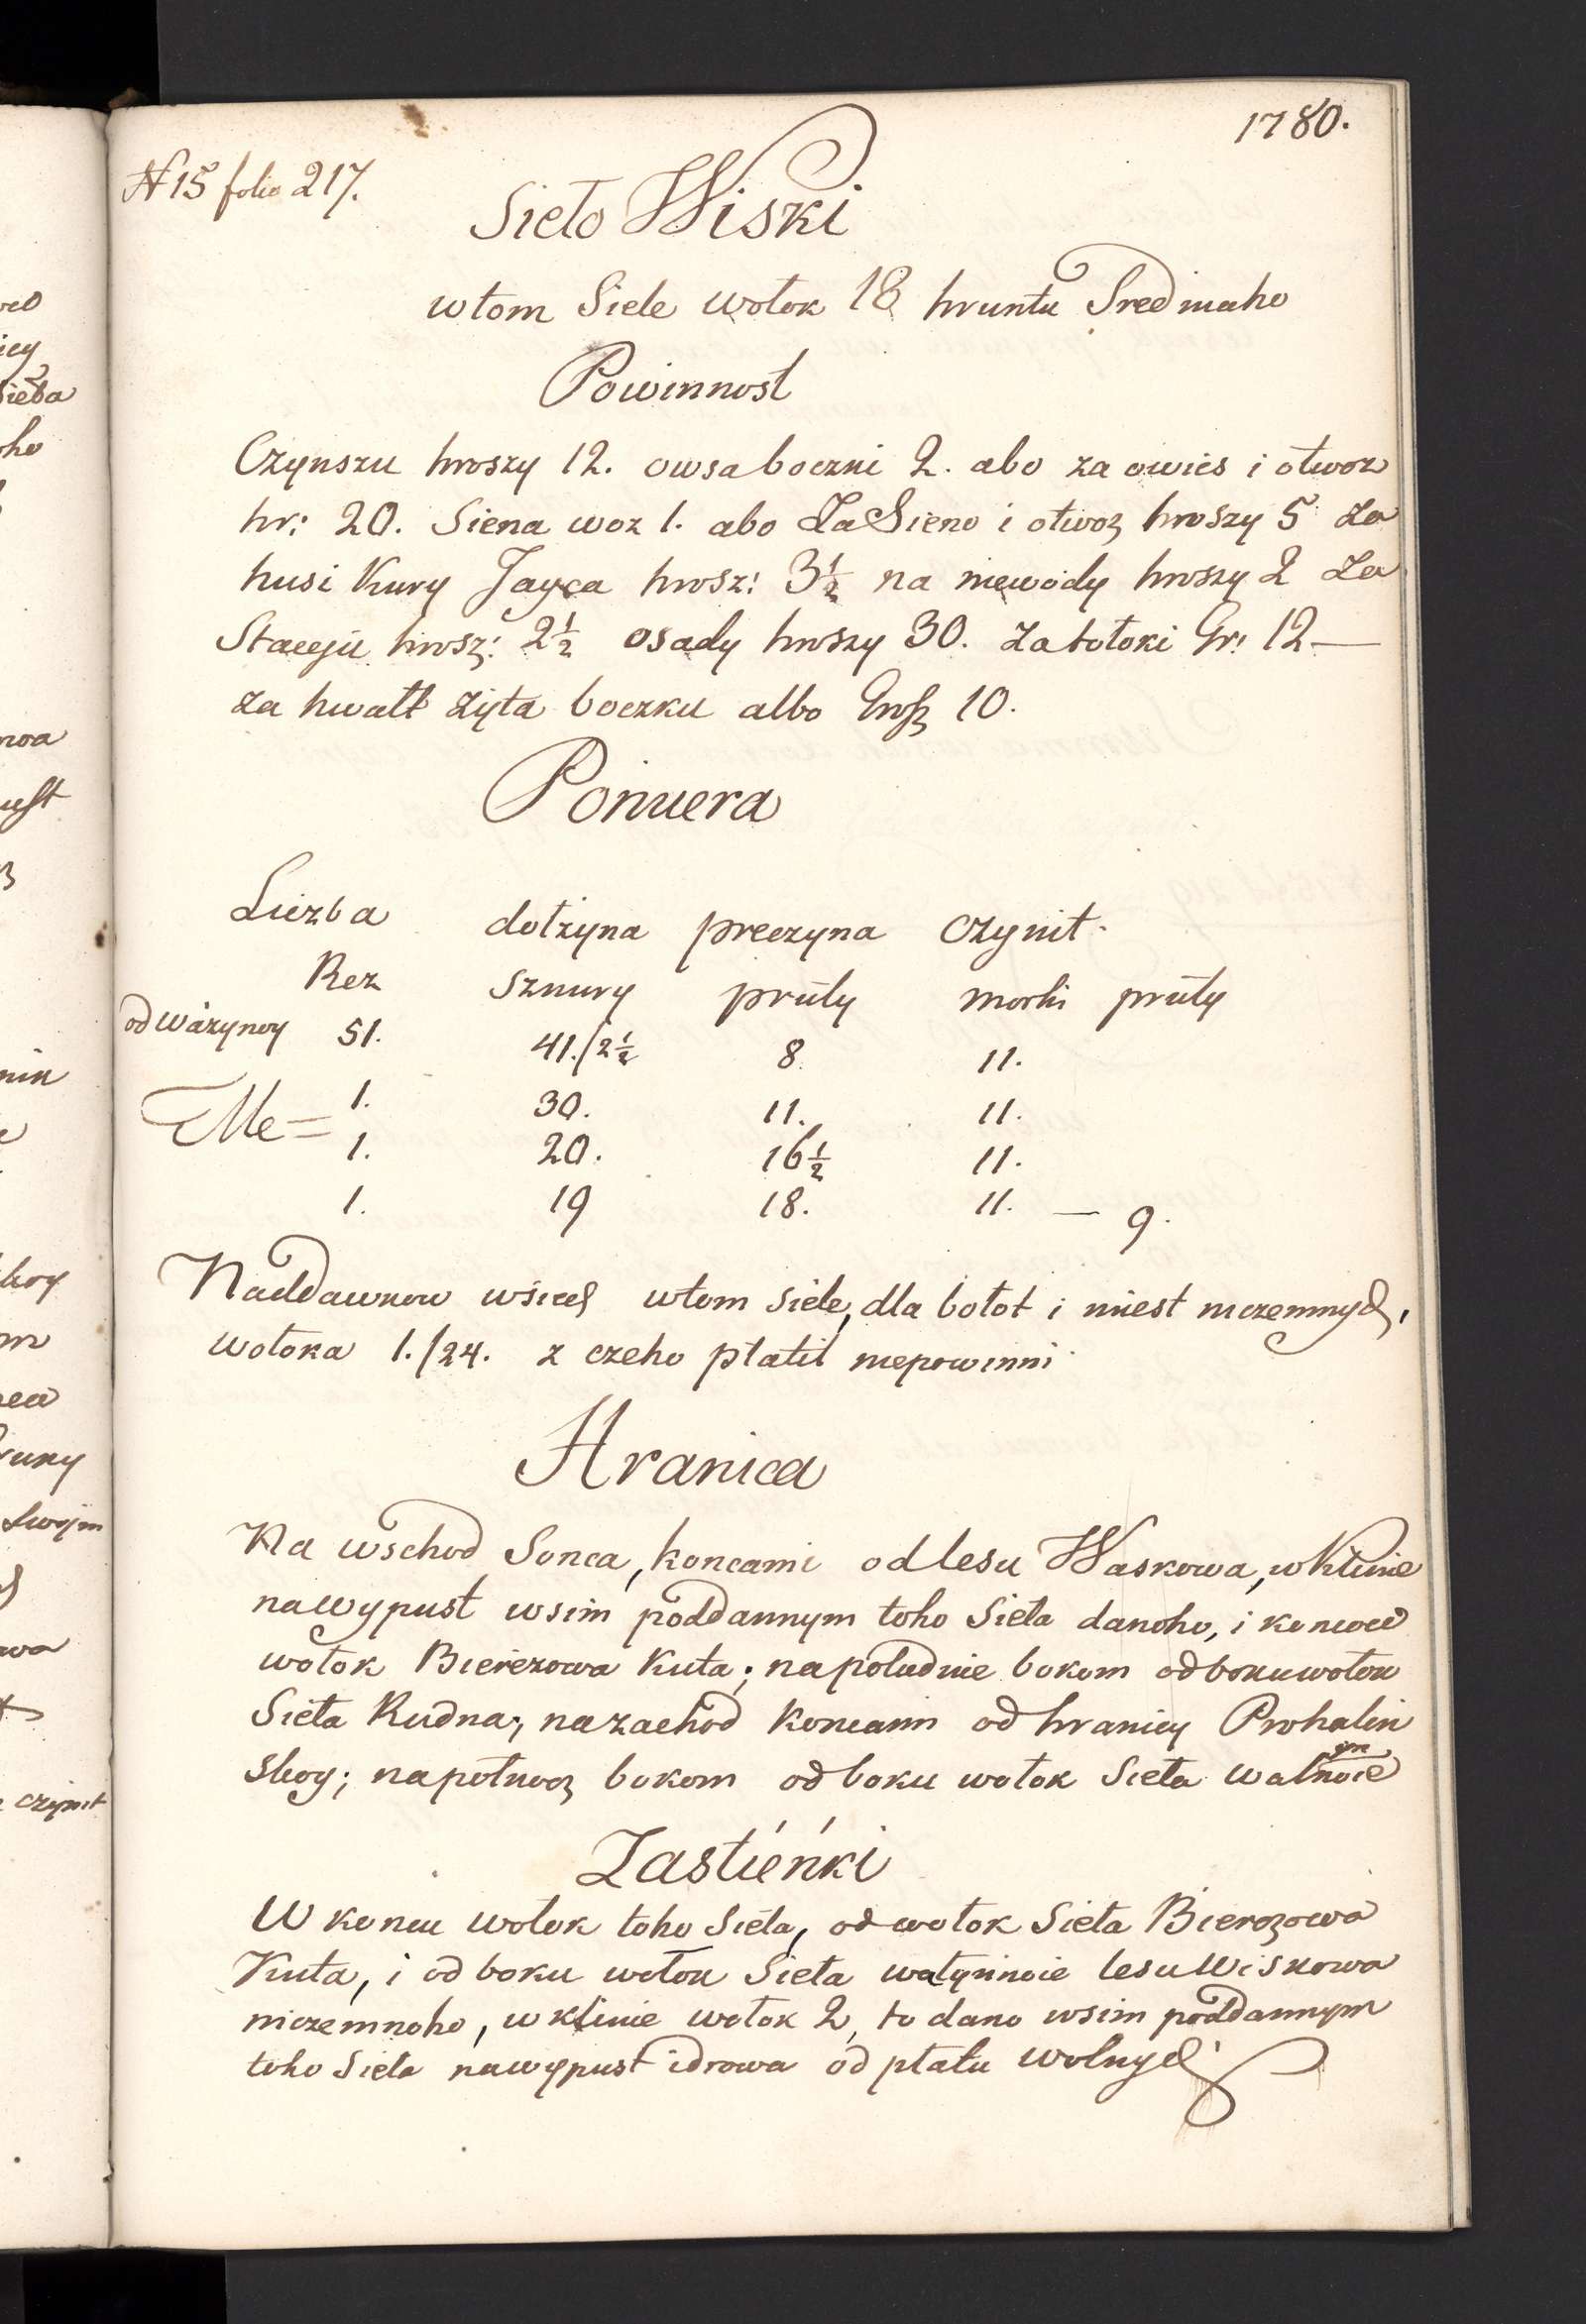 1780.
N 15 folio 217.
Sieło Wiski
w tom Siele wołok 18 hruntu Sredniaho
Powinnost
Czynszu hroszy 12. owsa boczni 2. abo za owies i otwoz
hr: 20. Siena woz 1. abo Za Sieno i otwoz hroszy 5 za
husi Kury Jayca hrosz: 3½ na niewody hroszy 2 Za
Stacyju hrosz: 2½ osady hroszy 30. za tołoki Gr: 12—
za hwałt żyta boczku albo Grosz 10.
Pomiera
Liczba dołżyna preczyna czynit.
Rez sznury pruty morhi pruty
od Ważynoy 51. 41./2½ 8. 11.
Me= 1. 30. 11. 11.
1. 20. 16½ 11.
1. 19 18. 11. — 9.
Naddawkow wsich w tom siele, dla bołot i miest niczemnych,
wołoka 1./24. z czeho płatit niepowinni
Hranica
Na wschod Sonca, koncami od lesu Waskowa, w Klinie
na wypust wsim poddannym toho Sieła danoho, i koncow
wołok Bierezowa Kuta; na poludnie bokom od boku wołok
Sieła Rudna; na zachod Koncami od hranicy Prohalin
skoy; na połnocz bokom od boku wołok Sieła Wałnoie
yn
Zastieńki
W koncu wołok toho Sieła, od wołok Sieła Bierozowa
Kuta, i od boku wołok Sieła wałynnoie lesu Wiskowa
niczemnoho, w klinie wołok 2, to dano wsim poddannym
toho Sieła na wypust i drowa od płatu wolnych